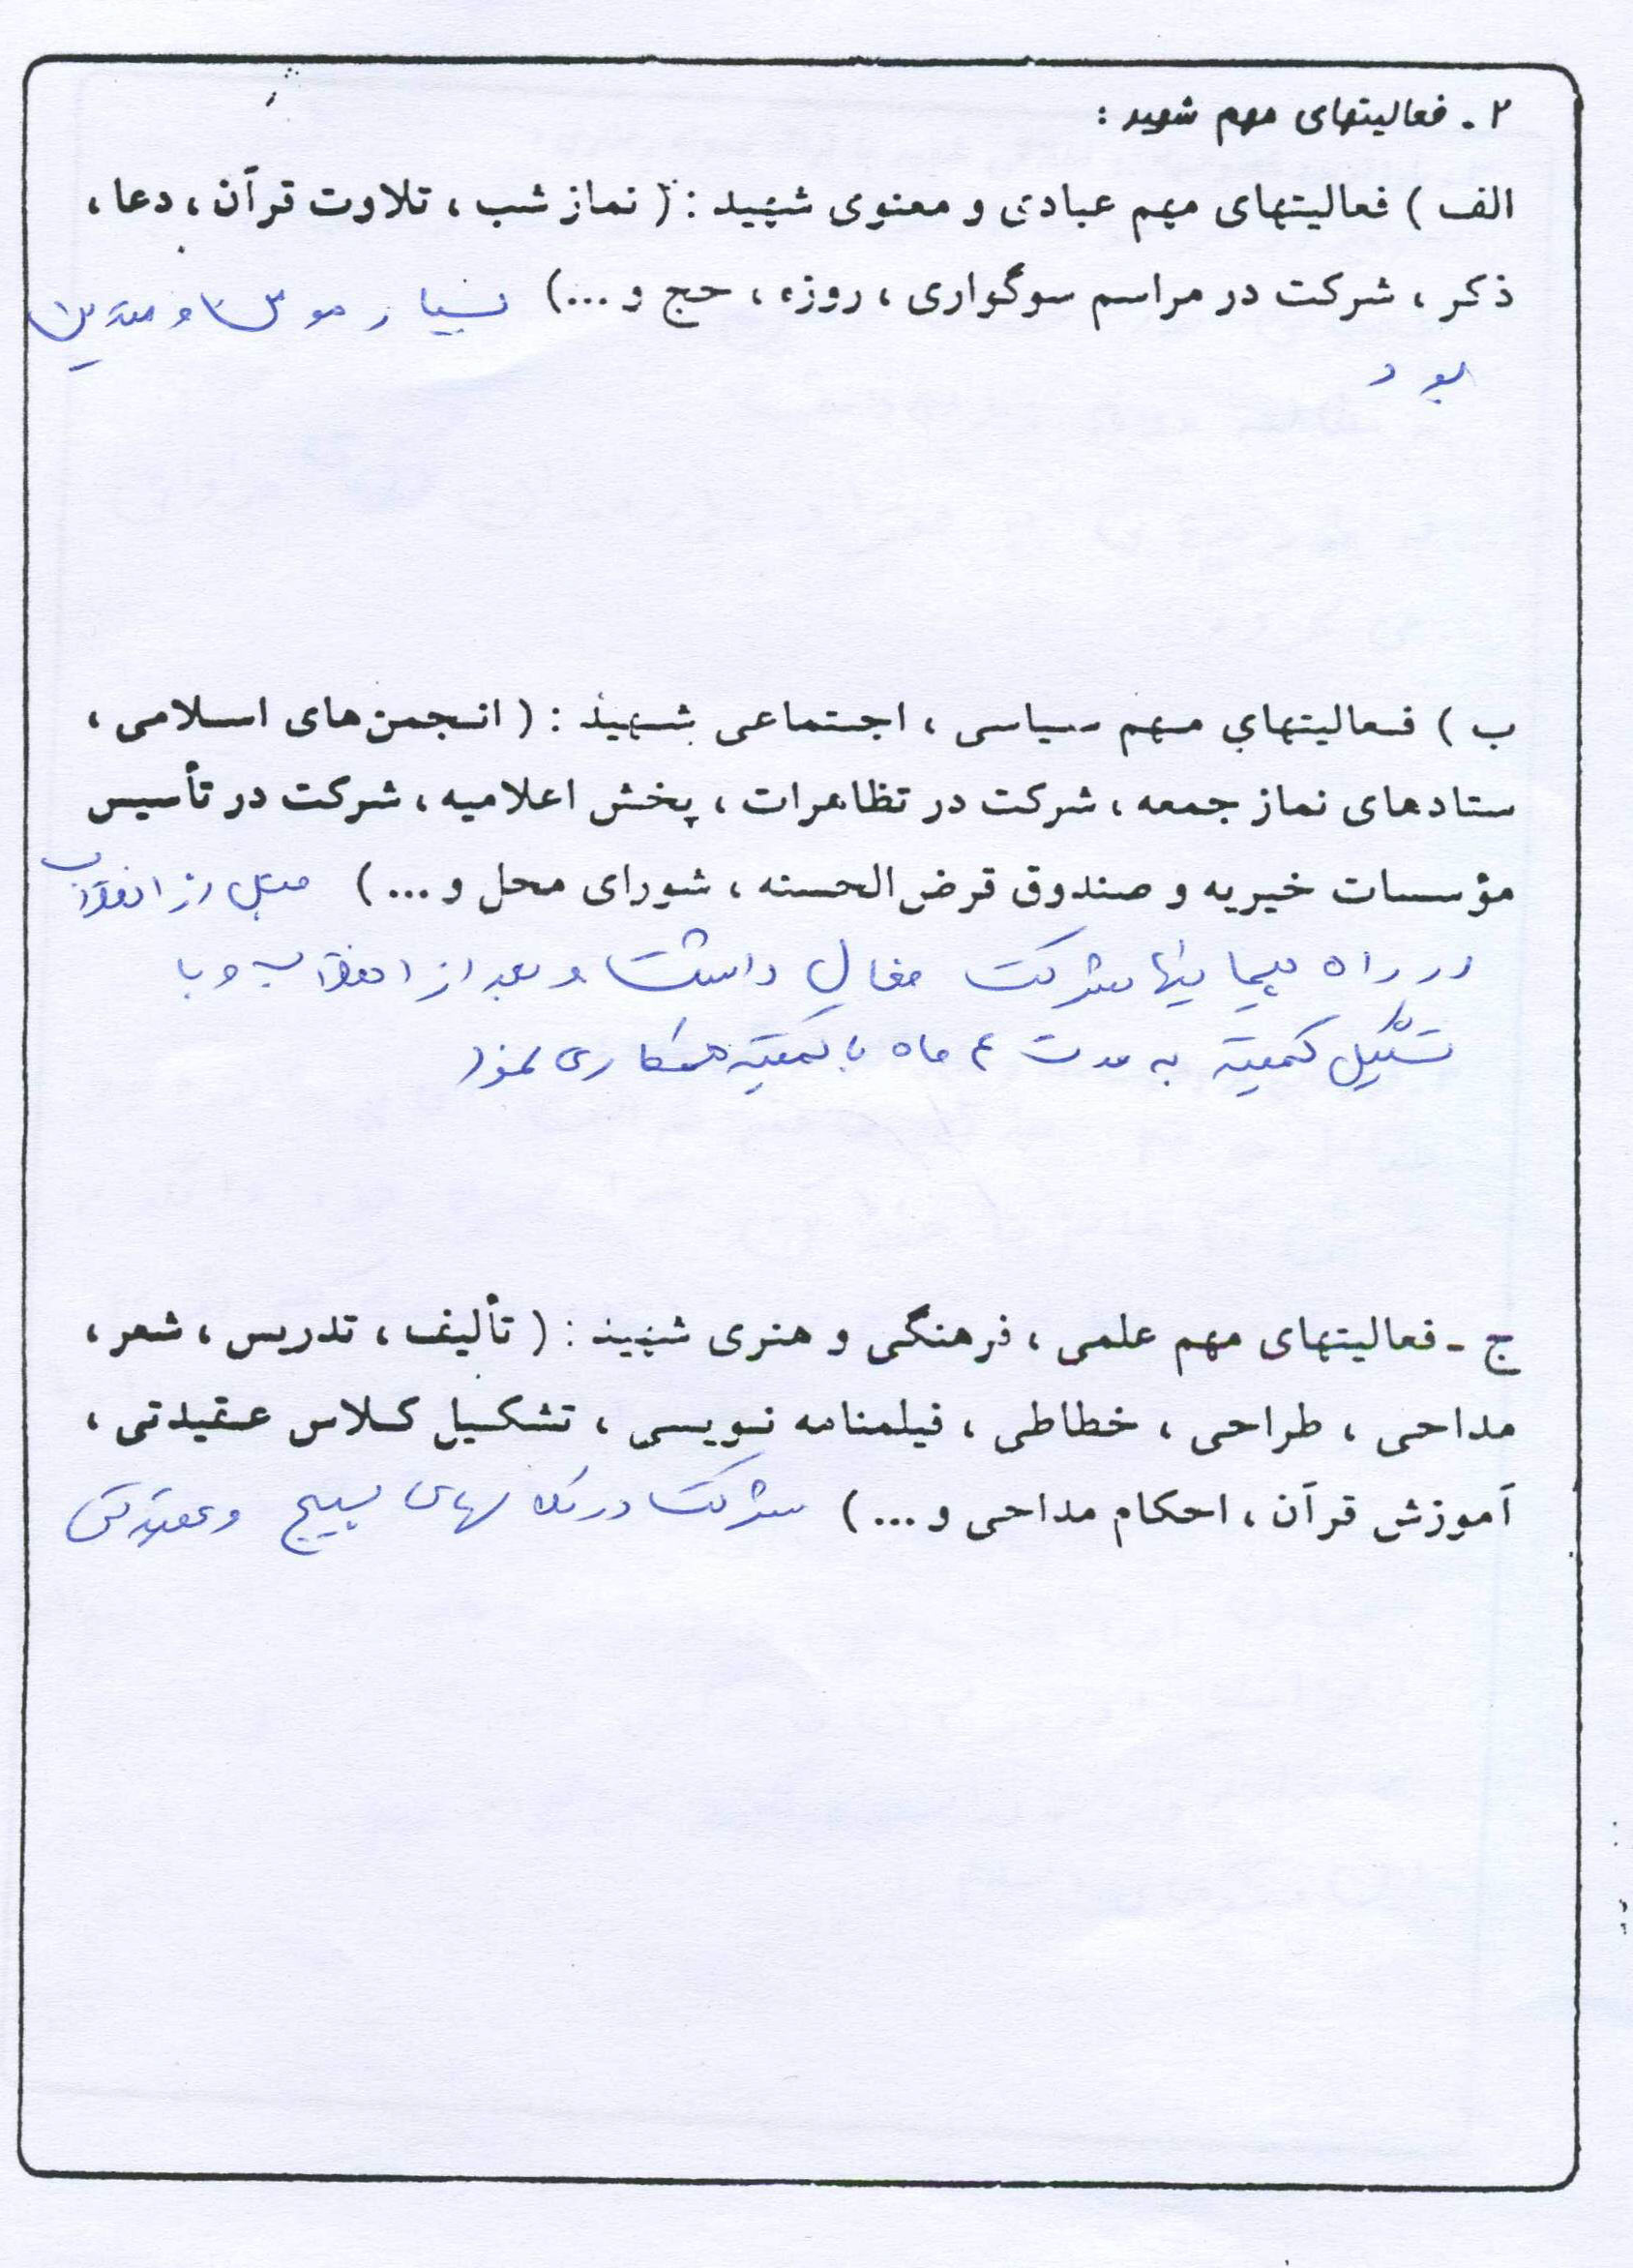 ۲ ـ فعالیتهای مهم شهید :
الف ) فعالیتهای مهم عبادی و معنوی شهید : ( نماز شب ، تلاوت قرآن ، دعا ،
ذکر ، شرکت در مراسم سوگواری ، روزه ، حج و ...) بسیار مومن و متدین
بود
ب ) فعالیتهای مهم سیاسی ، اجتماعی شهید : ( انجمن‌های اسلامی ،
ستادهای نماز جمعه ، شرکت در تظاهرات ، پخش اعلامیه ، شرکت در تأسیس
مؤسسات خیریه و صندوق قرض‌الحسنه ، شورای محل و ... ) قبل از انقلاب
در راه پیماییها شرکت فعال داشت و بعد از انقلاب و با
تشکیل کمیته به مدت ۴ ماه با کمیته همکاری نمود
ج ـ فعالیتهای مهم علمی ، فرهنگی و هنری شهید : ( تألیف ، تدریس ، شعر ،
مداحی ، طراحی ، خطاطی ، فیلمنامه نویسی ، تشکیل کلاس عقیدتی ،
آموزش قرآن ، احکام مداحی و ... ) شرکت در کلاسهای بسیج و عقیدتی